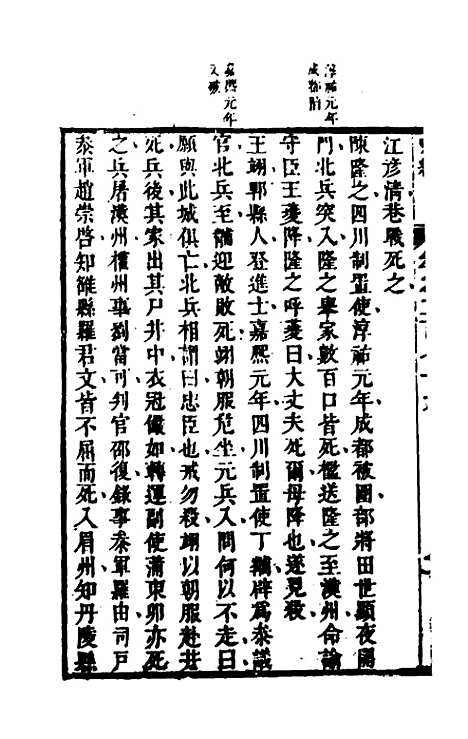 淳祐元年
成都陷
嘉熙元年
又破
江彦清巷戰死之
陳隆之四川制置使淳祐元年成都被圍部將田世顯夜開
門北兵突入隆之舉家數百口皆死檻送隆之至漢州命諭
守臣王夔降隆之呼夔曰大丈夫死爾毋降也遂見殺
王翊郫縣人登進士嘉熙元年四川制置使丁黼辟為叅議
官北兵至黼迎敵敗死翊朝服危坐元兵入問何以不走曰
願與此城俱亡北兵相謂曰忠臣也戒勿殺翊以朝服赴井
死兵後其家出其尸井中衣冠儼如轉運副使蒲東卯亦死
之兵居漢州權州事劉當可判官邵復錄事叅軍羅由司戸
叅軍趙崇啓知雒縣羅君文皆不屈而死入眉州知丹陵縣